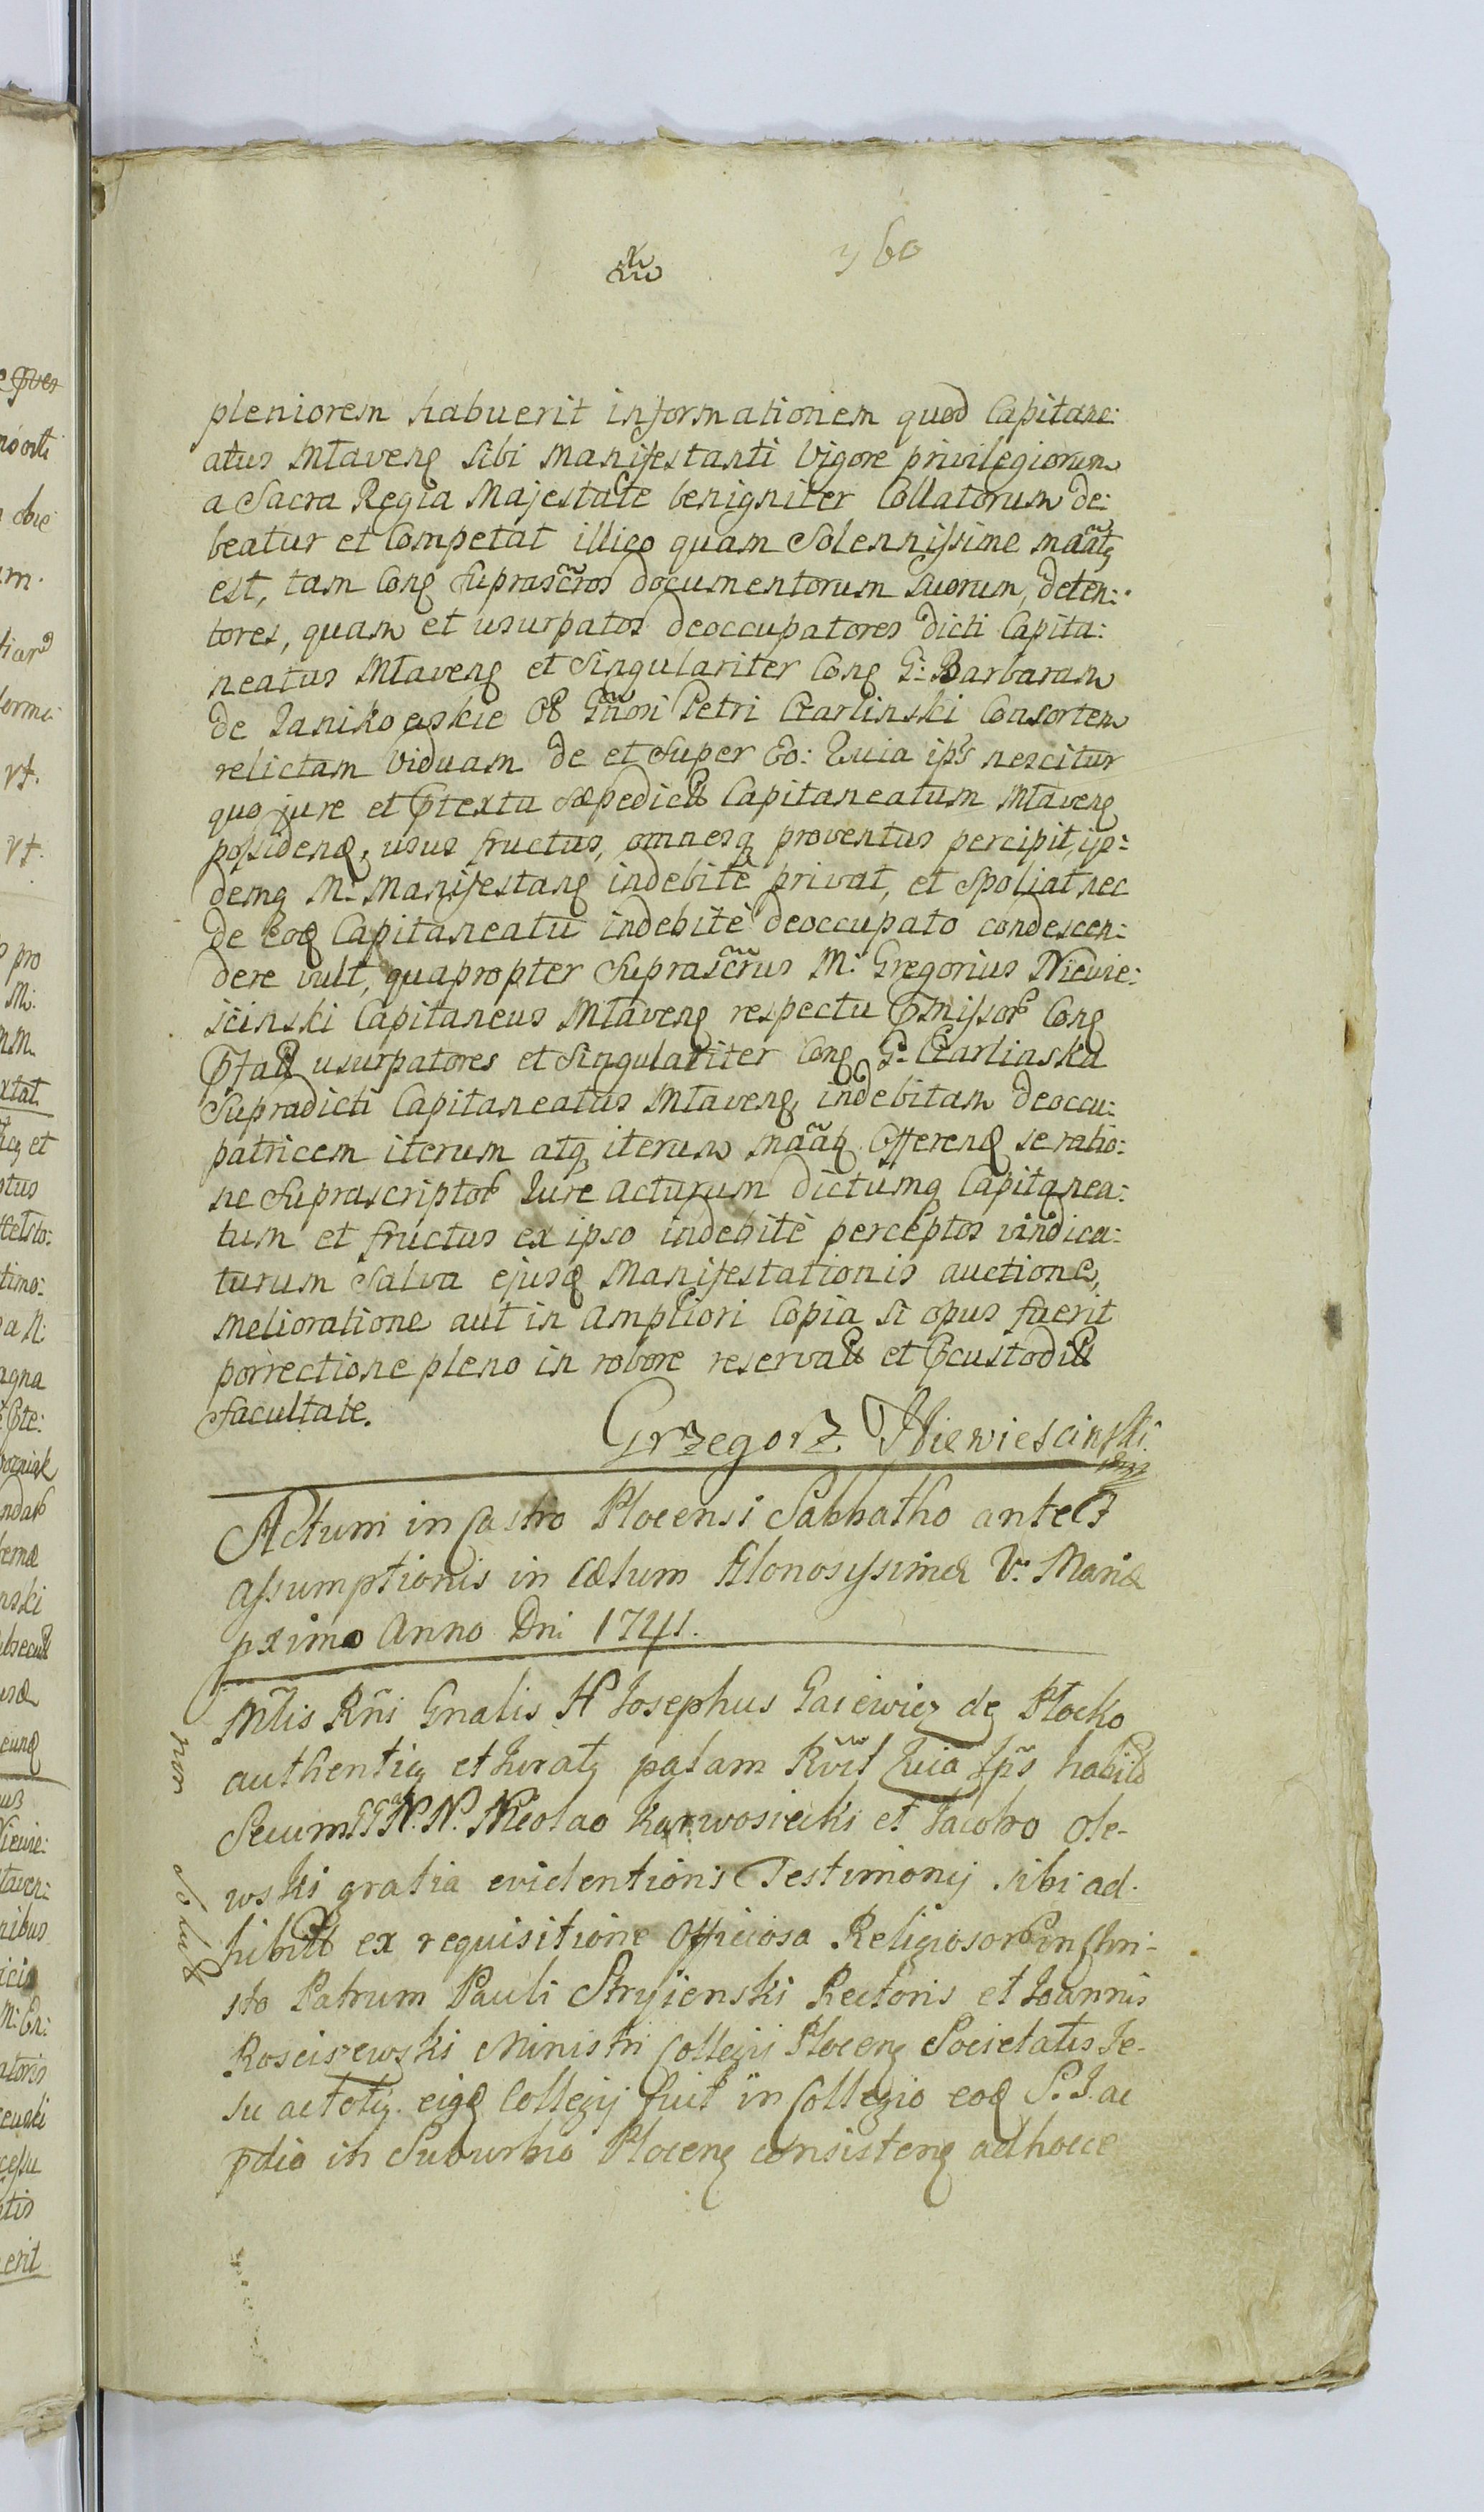 360
pleniorem habuerit informationem quod Capitane:
atus Mlaveng sibi Manifestanti Vigore privilegiorum
a Sacra Regia Majestate benigniter Collatorum de:
beatur et Competat illico quam Solennissime mããtq
est, tam Conq suprascr̃ros documentorum suorum, deten:
tores, quam et usurpatos deoccupatores dicti Capita:
neatus Mlaveng et Singulariter Conq G: Barbaram
de Janikowskie Olĩ Gñosi Petri Czarlinski Consortem
relictam Viduam de et super Eo: Quia ip̃s nescitur
quo jure et Ptextu sæpedict Capitaneatum Mlaveng
possidend, usus fructus, omnesq proventus percipit, ip:
demq M: Manifestanq indebitè privat, et spoliat nec
de eod Capitaneatu indebitè deoccupato condescen:
dere vult, quapropter suprascr̃rus M: Gregorius Niewie:
scinski Capitaneus Mlaveng respectu Pmissor Conq
Pfat usurpatores et Singulariter Conq G: Czarlinska
supradicti Capitaneatus Mlaveng, indebitam deoccu:
patricem iterum atq iterum mããtq Offerend se ratio:
ne suprascriptor Jure acturum dictumq Capitanea:
tum et fructus ex ipso indebitè perceptos vindica:
turum salva ejusd Manifestationis auctione,
melioratione aut in ampliori Copia si opus fuerit
porrectione pleno in robore reservat et Pcustodit
facultate.
Grzegorz Niewiescinski
Actum in Castro Plocensi Sabbatho ante F
assumptionis in Cælum Glorosissimæ V. Mariæ
pximo Anno Dni 1741.
Mltis Rñi Gnalis H Josephus Gaiewicz de Płocko
authentiq et Juratq palam Rvit Quia Ip̃s habito
Secum GG N. N. Nicolao Karwosiecki et Jacobo Ole-
wski gratia evidentioris Testimonij sibi ad-
hibit ex requisitione officiosa Religiosor in Chri-
sto Patrum Pauli Stryienski Rectoris et Joannis
Rosciszewski Ministri Collegij Plocenq Societatis Je-
su ac totiq eigd Collegij fuit in Collegio eod S. J. ac
pdio in Suburbio Plocenq consistenq ad hocce
non